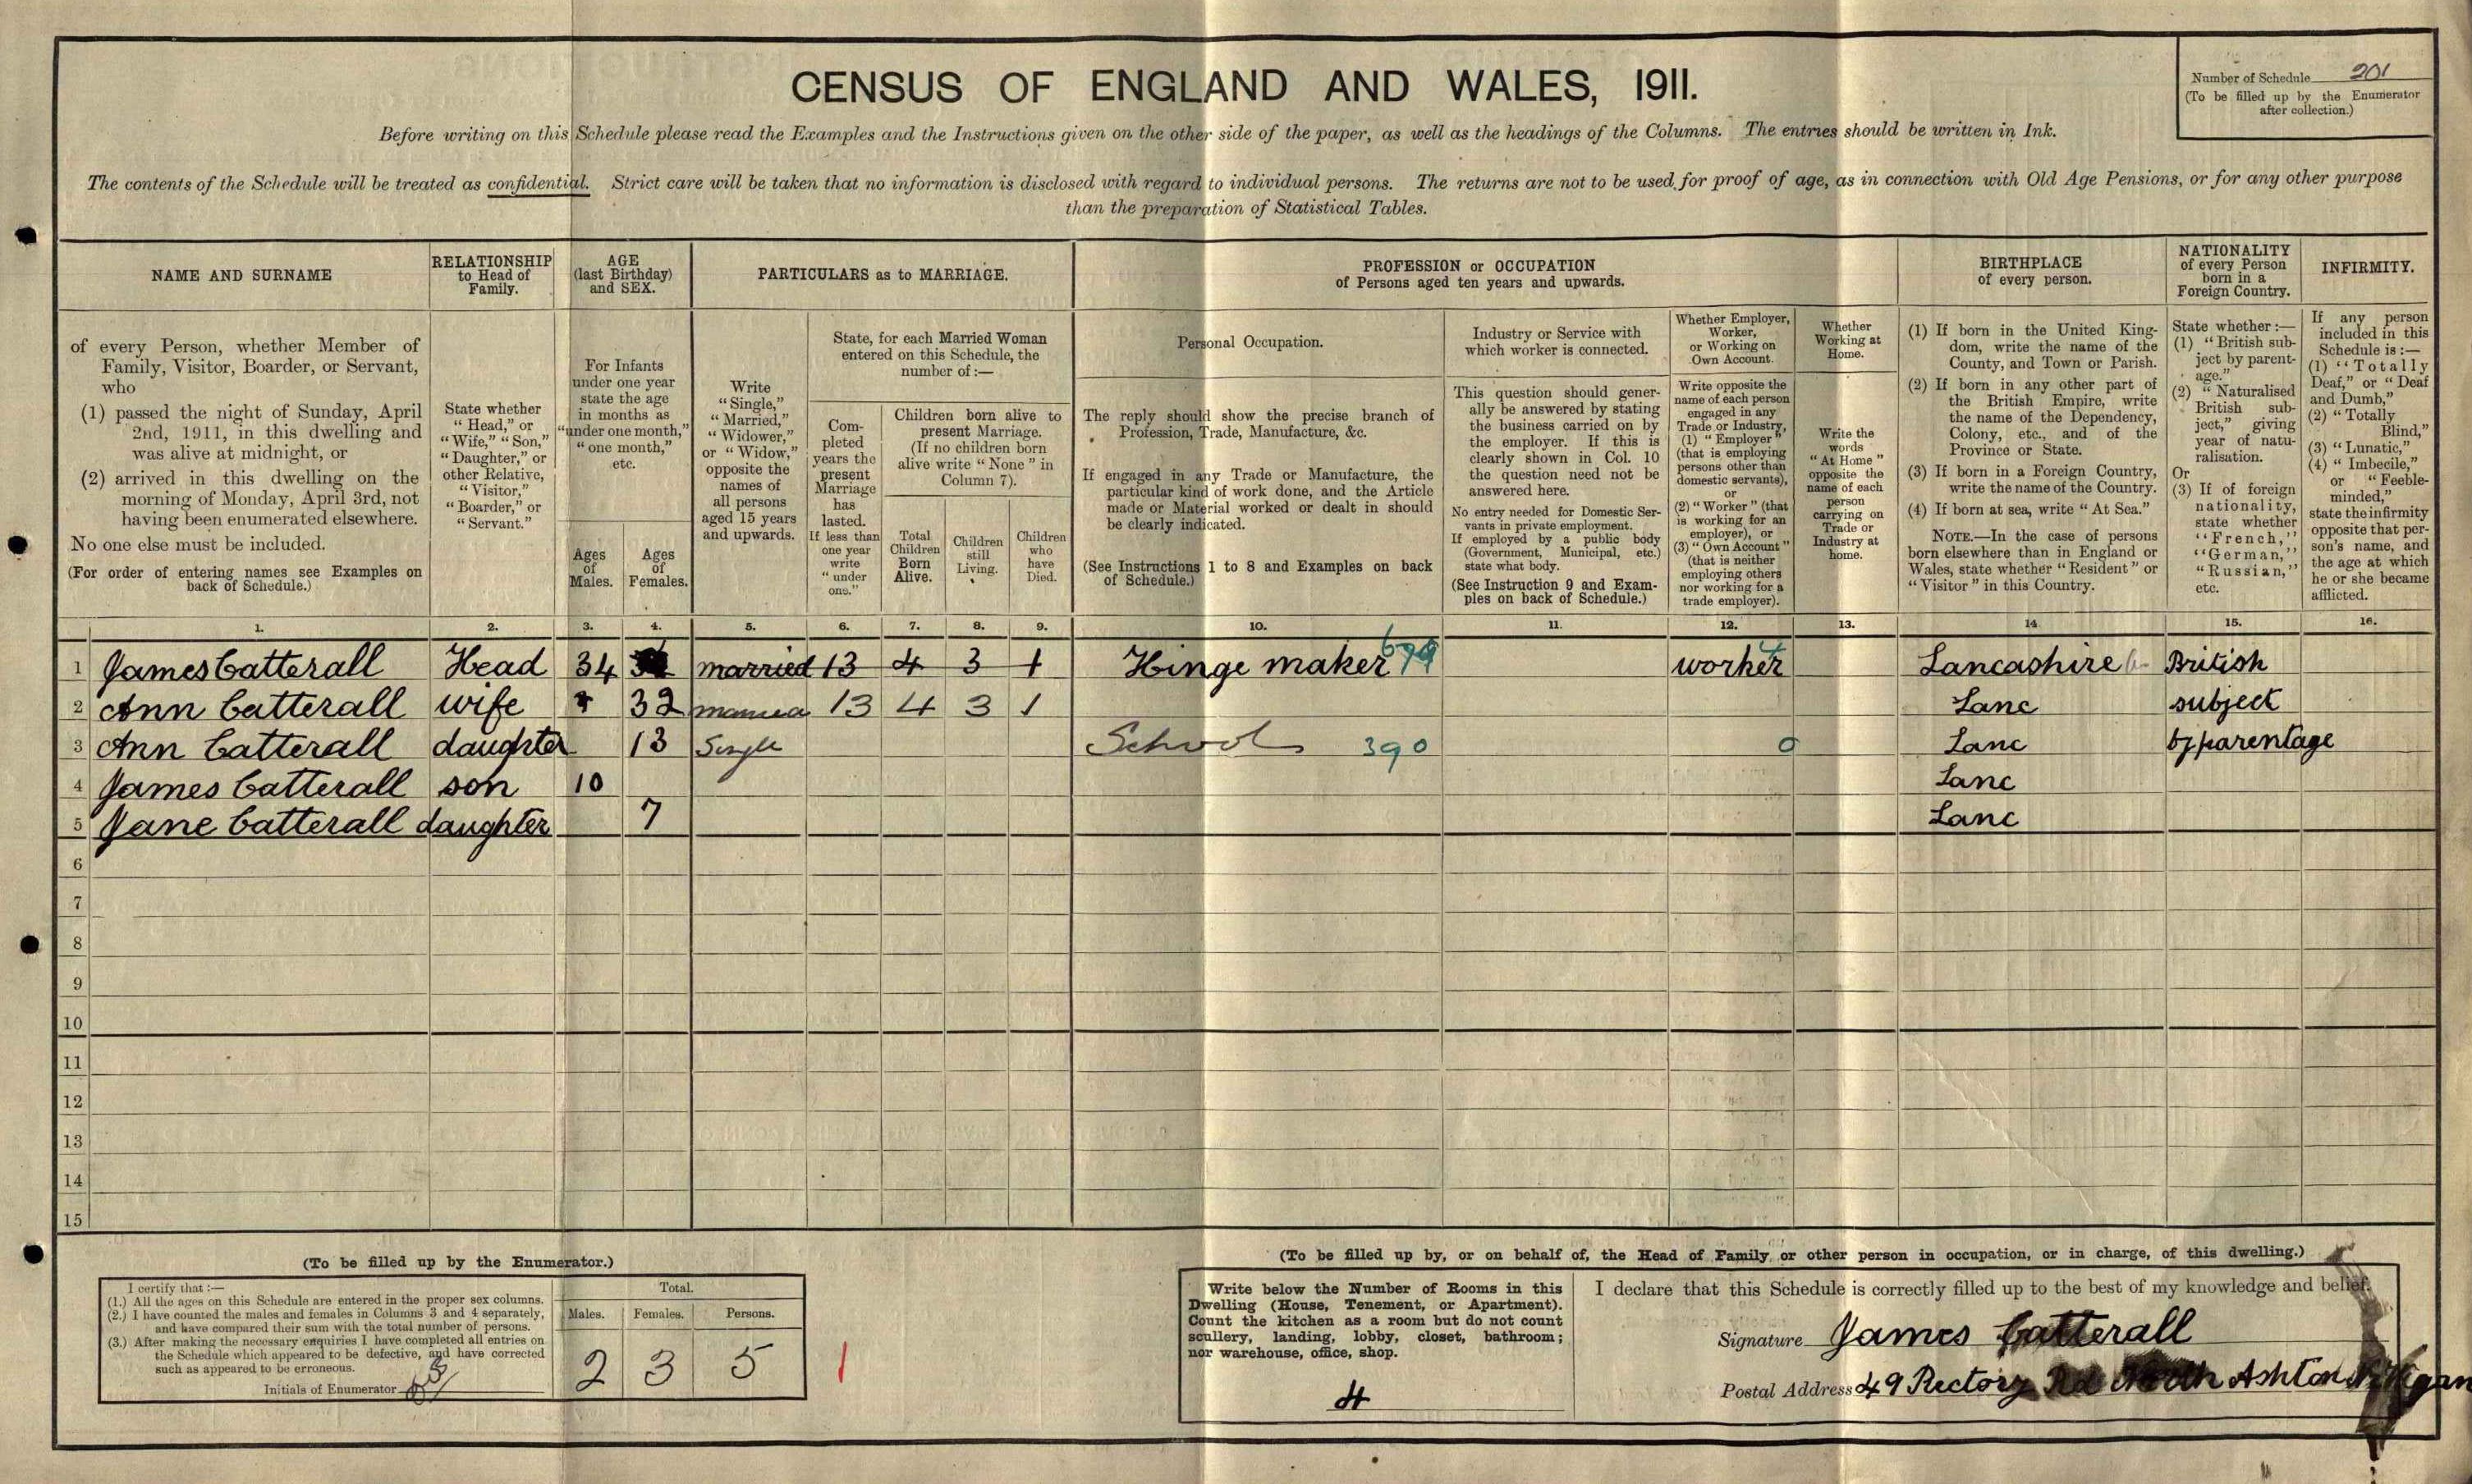 CENSUS OF ENGLAND AND WALES, 1911.
Number of Schedule 201
(To be filled up by the Enumerator
after collection.)
Before writing on this Schedule please read the Examples and the Instructions given on the other side of the paper, as well as the headings of the Columns. The entries should be written in Ink.
The contents of the Schedule will be treated as confidential. Strict care will be taken that no information is disclosed with regard to individual persons. The returns are not to be used for proof of age, as in connection with Old Age Pensions, or for any other purpose
than the preparation of Statistical Tables.
NAME AND SURNAME
of every Person, whether Member of
Family, Visitor, Boarder, or Servant,
who
(1) passed the night of Sunday, April
2nd, 1911, in this dwelling and
was alive at midnight, or
(2) arrived in this dwelling on the
morning of Monday, April 3rd, not
having been enumerated elsewhere.
No one else must be included.
(For order of entering names see Examples on
back of Schedule.)
RELATIONSHIP
to Head of
Family.
State whether
"Head," or
"Wife," "Son,"
"Daughter," or
other Relative,
"Visitor,"
"Boarder," or
"Servant."
AGE
(last Birthday)
and SEX.
For Infants
under one year
state the age
in months as
"under one month,"
"one month,"
etc.
Ages
of
Males.
Ages
of
Females.
PARTICULARS as to MARRIAGE.
Write
"Single,"
"Married,"
"Widower,"
or "Widow,"
opposite the
names of
all persons
aged 15 years
and upwards.
State, for each Married Woman
entered on this Schedule, the
number of :—
Com-
pleted
years the
present
Marriage
has
lasted.
If less than
one year
write
"under
one."
Children born alive to
present Marriage.
(If no children born
alive write "None" in
Column 7).
Total
Children
Born
Alive.
Children
still
Living.
Children
who
have
Died.
PROFESSION or OCCUPATION
of Persons aged ten years and upwards.
Personal Occupation.
The reply should show the precise branch of
Profession, Trade, Manufacture, &c.
If engaged in any Trade or Manufacture, the
particular kind of work done, and the Article
made or Material worked or dealt in should
be clearly indicated.
(See Instructions 1 to 8 and Examples on back
of Schedule.)
Industry or Service with
which worker is connected.
This question should gener-
ally be answered by stating
the business carried on by
the employer. If this is
clearly shown in Col. 10
the question need not be
answered here.
No entry needed for Domestic Ser-
vants in private employment.
If employed by a public body
(Government, Municipal, etc.)
state what body.
(See Instruction 9 and Exam-
ples on back of Schedule.)
Whether Employer,
Worker,
or Working on
Own Account.
Write opposite the
name of each person
engaged in any
Trade or Industry,
(1) "Employer"
(that is employing
persons other than
domestic servants),
or
(2) "Worker" (that
is working for an
employer), or
(3) "Own Account"
(that is neither
employing others
nor working for a
trade employer).
Whether
Working at
Home.
Write the
words
"At Home"
opposite the
name of each
person
carrying on
Trade or
Industry at
home.
BIRTHPLACE
of every person.
(1) If born in the United King-
dom, write the name of the
County, and Town or Parish.
(2) If born in any other part of
the British Empire, write
the name of the Dependency,
Colony, etc., and of the
Province or State.
(3) If born in a Foreign Country,
write the name of the Country.
(4) If born at sea, write "At Sea."
NOTE.—In the case of persons
born elsewhere than in England or
Wales, state whether "Resident" or
"Visitor" in this Country.
NATIONALITY
of every Person
born in a
Foreign Country.
State whether :—
(1) "British sub-
ject by parent-
age."
(2) "Naturalised
British sub-
ject," giving
year of natu-
ralisation.
Or
(3) If of foreign
nationality,
state whether
"French,"
"German,"
"Russian,"
etc.
INFIRMITY.
If any person
included in this
Schedule is :—
(1) "Totally
Deaf," or "Deaf
and Dumb,"
(2) "Totally
Blind,"
(3) "Lunatic,"
(4) "Imbecile,"
or "Feeble-
minded,"
state the infirmity
opposite that per-
son's name, and
the age at which
he or she became
afflicted.
1. 2. 3. 4. 5. 6. 7. 8. 9. 10. 11. 12. 13. 14 15. 16.
1 James Catterall Head 34 married 13 4 3 1 Hinge maker 679 worker Lancashire British
2 Ann Catterall wife 32 married 13 4 3 1 Lanc subject
3 Ann Catterall daughter 13 Single School 390 0 Lanc by parentage
4 James Catterall son 10 Lanc
5 Jane Catterall daughter 7 Lanc
6
7
8
9
10
11
12
13
14
15
(To be filled up by the Enumerator.)
I certify that :—
(1.) All the ages on this Schedule are entered in the proper sex columns.
(2.) I have counted the males and females in Columns 3 and 4 separately,
and have compared their sum with the total number of persons.
(3.) After making the necessary enquiries I have completed all entries on
the Schedule which appeared to be defective, and have corrected
such as appeared to be erroneous.
Initials of Enumerator
Total.
Males. Females. Persons.
2 3 5
1
(To be filled up by, or on behalf of, the Head of Family or other person in occupation, or in charge, of this dwelling.)
Write below the Number of Rooms in this
Dwelling (House, Tenement, or Apartment).
Count the kitchen as a room but do not count
scullery, landing, lobby, closet, bathroom;
nor warehouse, office, shop.
4
I declare that this Schedule is correctly filled up to the best of my knowledge and belief.
Signature James Catterall
Postal Address 49 Rectory Rd North Ashton N. Wigan